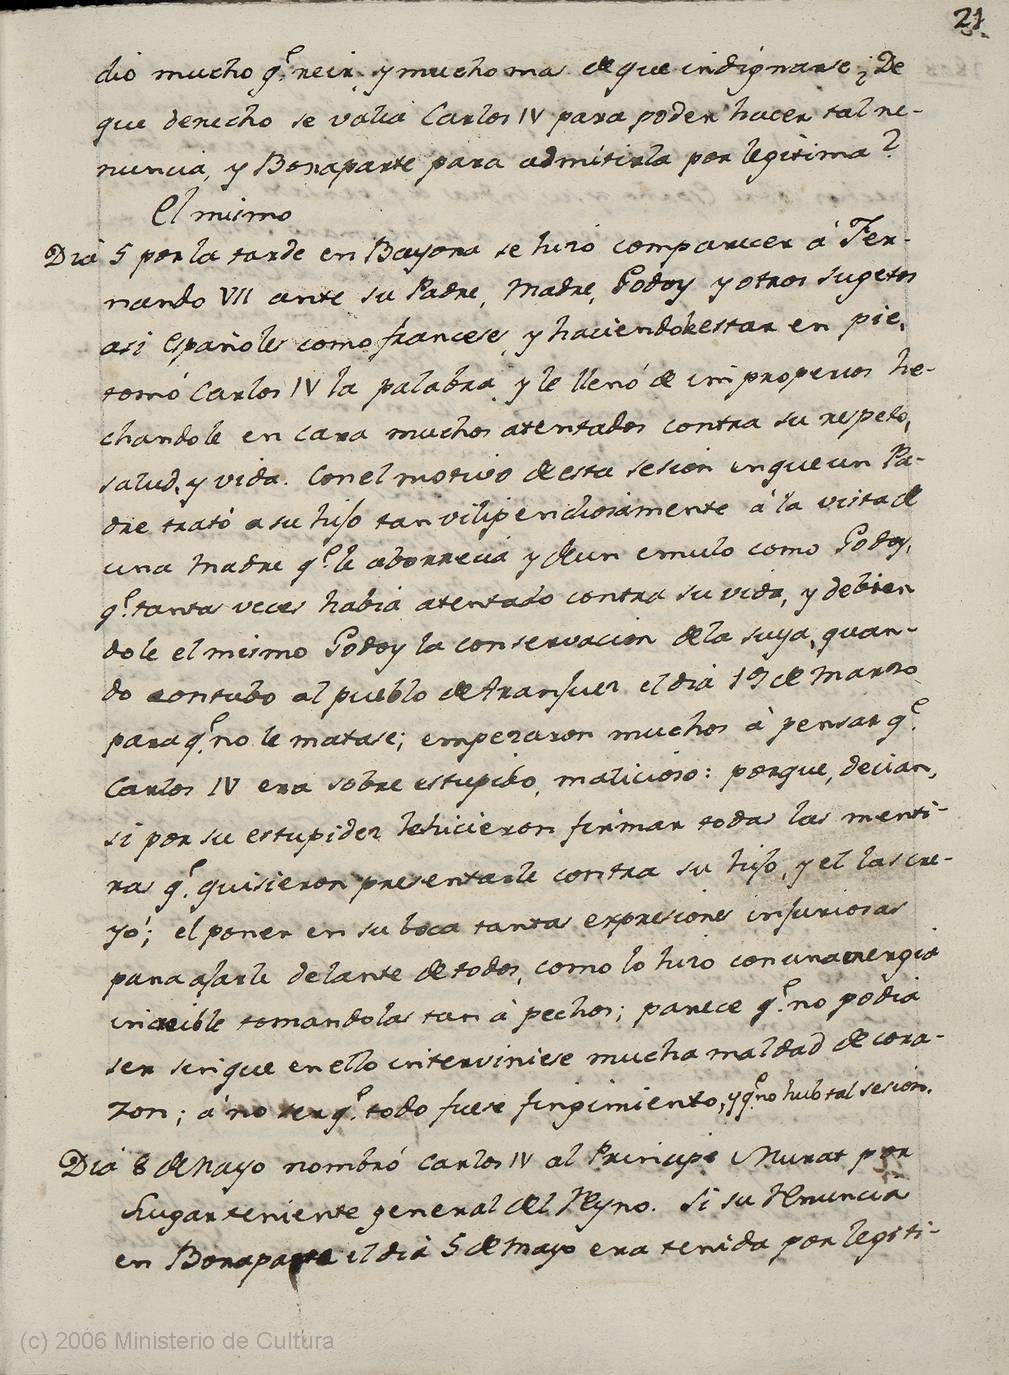 21
dio mucho q.e reir, y mucho mas de que indignarse ¿De
que derecho se valia Carlos IV para poder hacer tal re-
nuncia, y Bonaparte para admitirla por legitima?
El mismo
Dia 5 por la tarde en Bayona se hizo comparecer á Fer-
nando VII ante su Padre, Madre, Godoy y otros sugetos
asi Españoles como franceses, y haciendole estar en pie,
tomó Carlos IV la palabra y le llenó de improperios he-
chandole en cara muchos atentados contra su respeto,
salud, y vida. Con el motivo de esta sesion in que un Pa-
dre trató a su hijo tan vilipendiosamente á la vista de
una Madre q.e le aborrecia y de un emulo como Godoy,
q.e tantas veces habia atentado contra su vida, y debien
dole el mismo Godoy la conservacion de la suya, quan-
do contubo al pueblo de Aranjuez el dia 19 de Marzo
para q.e no le matase; empezaron muchos á pensar q.e
Carlos IV era sobre estupido, malicioso: porque, decian,
si por su estupidez le hicieron firmar todas las menti-
ras q.e quisieron presentarle contra su hijo, y el las cre-
yó; el poner en su boca tantas expresiones injuriosas
para ajarle delante de todos, como lo hizo con una energia
increible tomandolas tan á pechos; parece q.e no podia
ser sin que en ello interviniese mucha maldad de cora-
zon; á no ser q.e todo fuese fingimiento, y q.e no hub tal sesion.
Dia 8 de Mayo nombró Carlos IV al Principe Murat por
Lugarteniente general del Reyno. Si su Renuncia
en Bonaparte el dia 5 de Mayo era tenida por legiti-
(c) 2006 Ministerio de Cultura